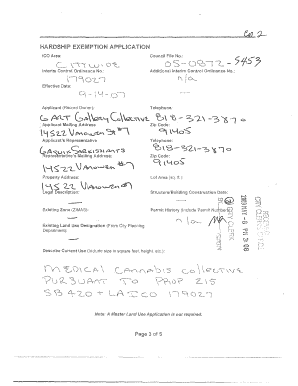 Ex. 2
HARDSHIP EXEMPTION APPLICATION
ICO Area: Council File No.:
CITYWIDE 05-0872-S453
Interim Control Ordinance No.: Additional Interim Control Ordinance No.:
179027 n/a
Effective Date:
9-14-07
Applicant (Record Owner): Telephone:
G ART Gallery Collective 818-321-3870
Applicant Mailing Address Zip Code:
14522 Vanowen St #7 91405
Applicant's Representative Telephone:
818-321-3870
Representative's Mailing Address Zip Code:
14522 Vanowen #7 91405
Property Address: Lot Area (sq. ft.)
14522 Vanowen #7
Legal Description: Structure/Building Construction Date:
Existing Zone (ZIMAS): Permit History (Include Permit Numbers)
n/a
Existing Land Use Designation (From City Planning
Department):
Describe Current Use (Include size in square feet, height, etc.)
MEDICAL CANNABIS COLLECTIVE
PURSUANT TO PROP 215
SB 420 + LA ICO 179027
Note: A Master Land Use Application is not required.
Page 3 of 5
CITY CLERK